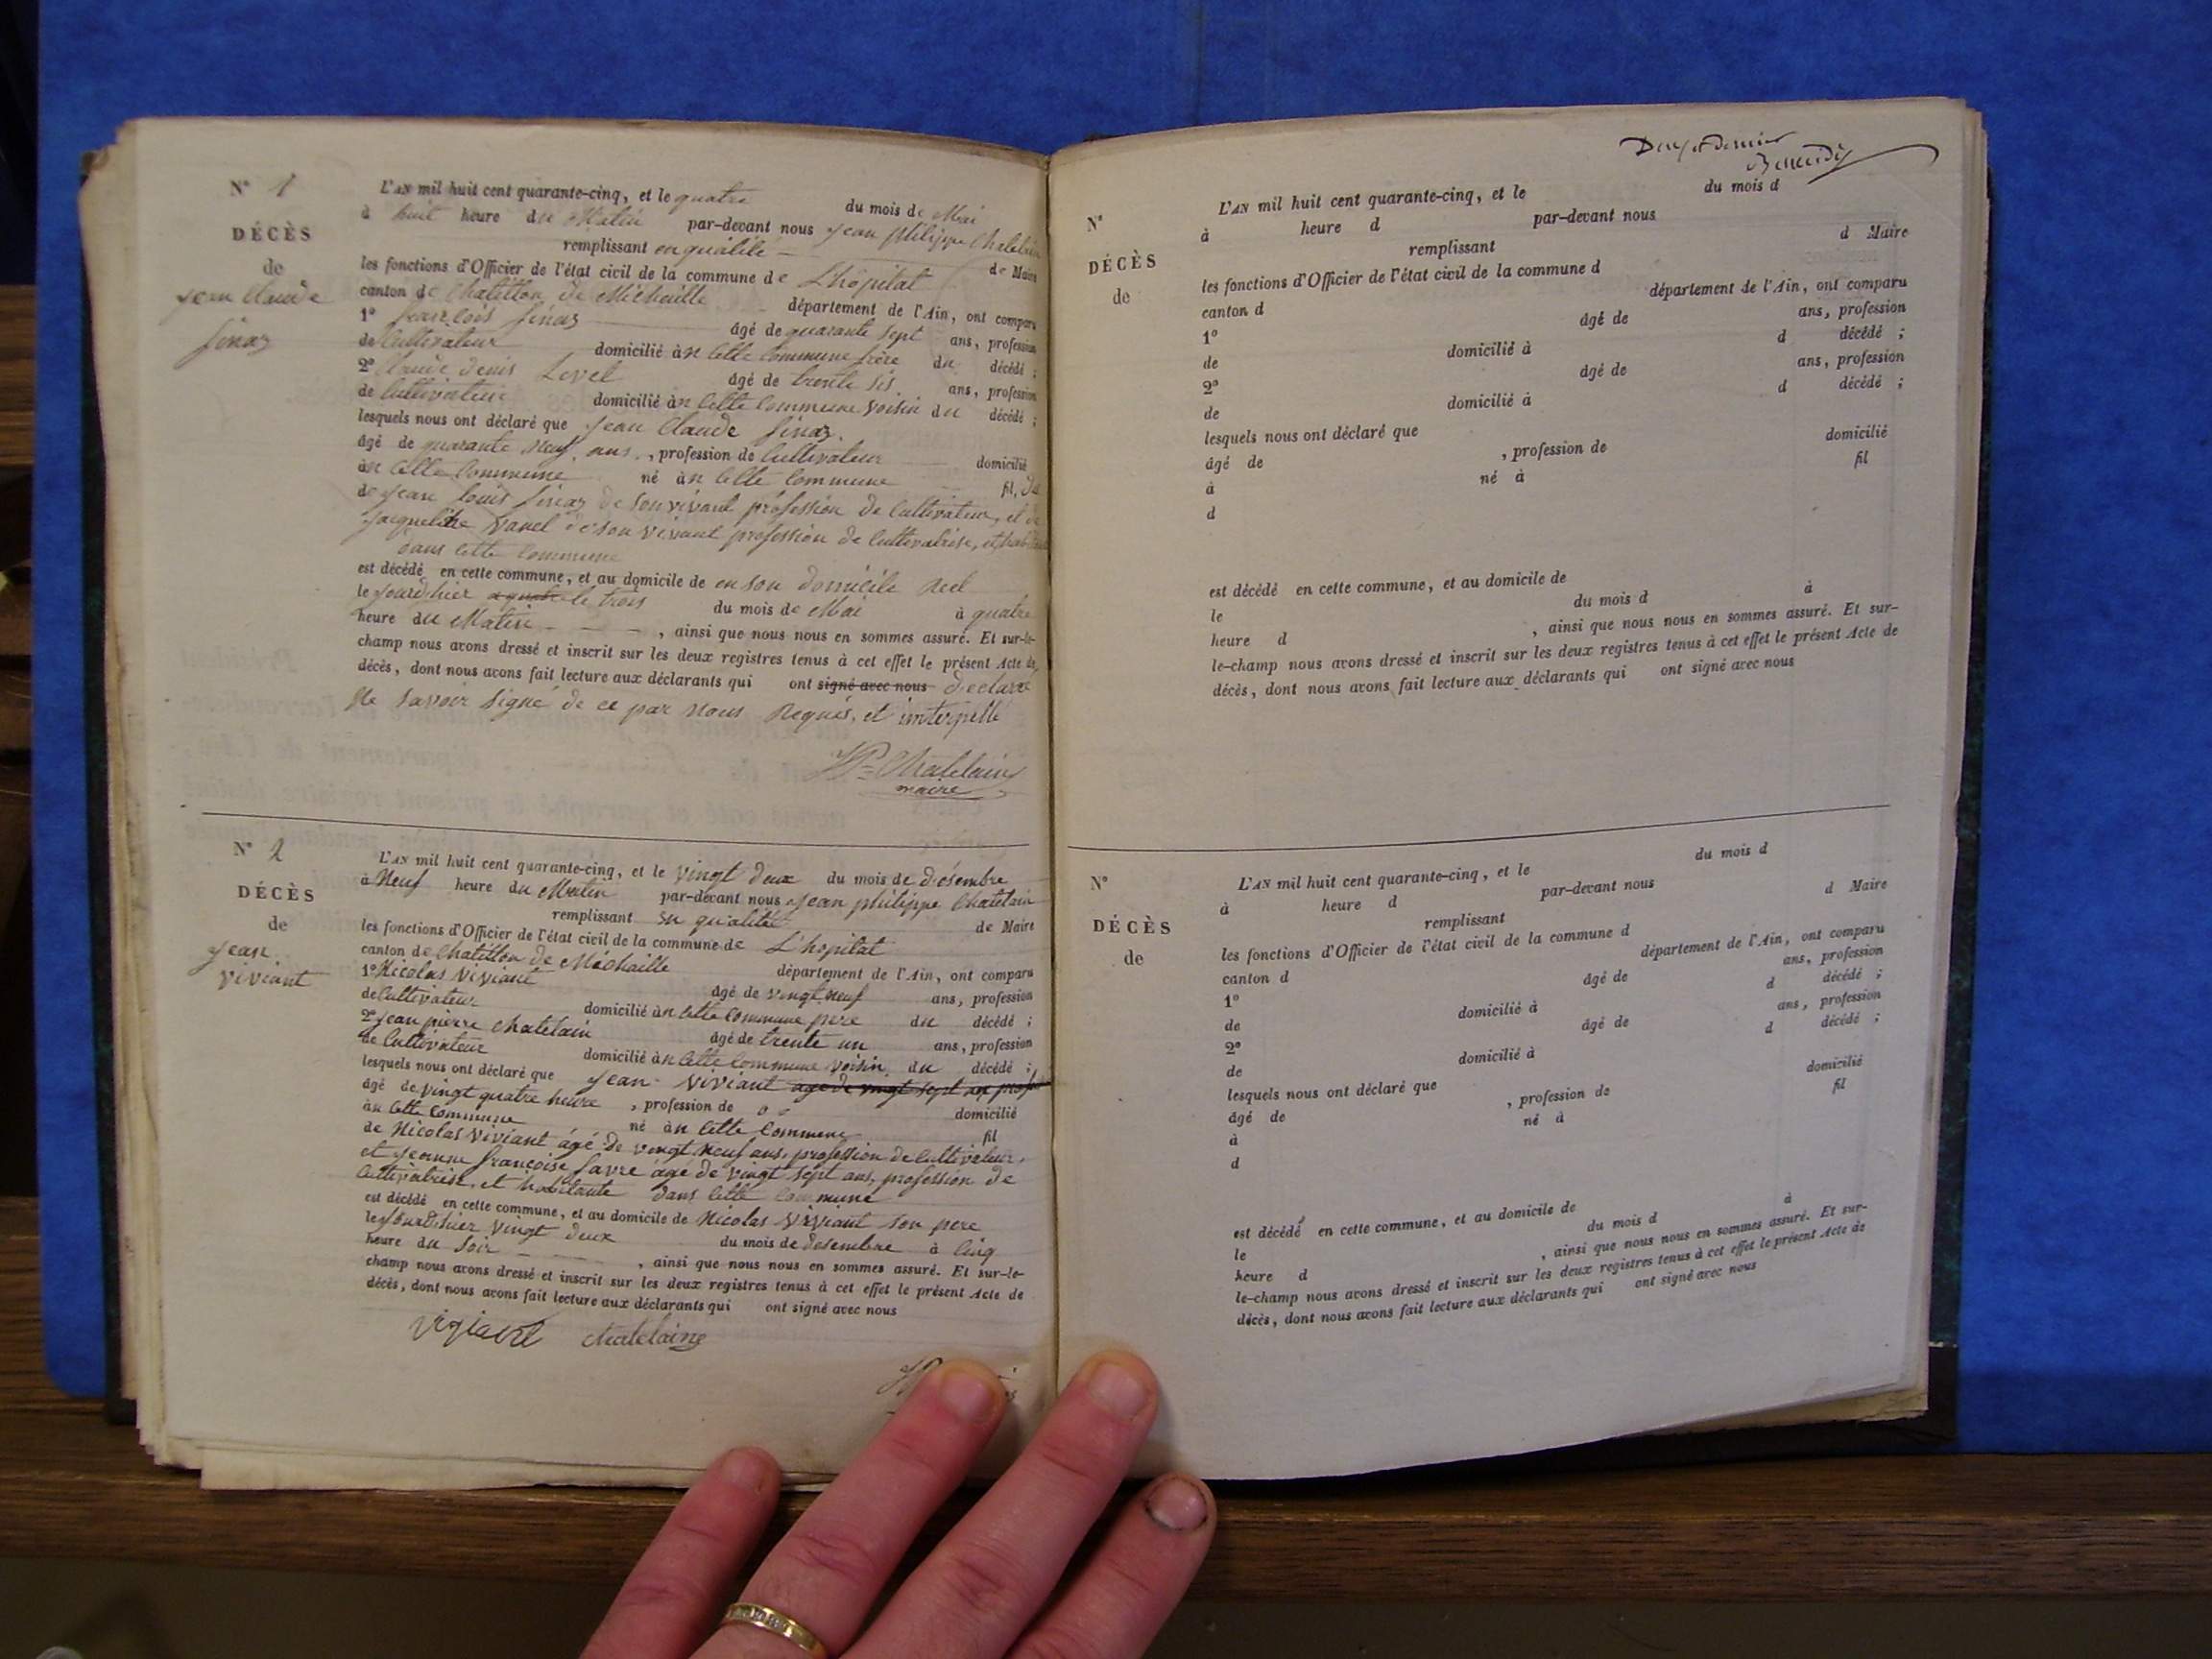 N° 1
DÉCÈS
de
Jean Claude
Sinaz
L'AN mil huit cent quarante-cinq, et le quatre du mois de Mai
à huit heure du Matin par-devant nous Jean philippe Chatelain
remplissant en qualité de Maire
les fonctions d'Officier de l'état civil de la commune de L'hôpital
canton de Chatillon de Michaille département de l'Ain, ont comparu
1° Jean louis Sinaz âgé de quarante sept ans, profession
de Cultivateur domicilié àn cette commune frère du décédé ;
2° Claude denis Levet âgé de trente sis ans, profession
de Cultivateur domicilié àn cette Commune voisin du décédé ;
lesquels nous ont déclaré que Jean Claude Sinaz.
âgé de quarante neuf ans , profession de Cultivateur domicilié
àn cette Commune né àn cette commune fil, de
de Jean Louis Sinaz de son vivant profession de Cultivateur, et de
Jacqueline vanel de son vivant profession de Cultivatrise, et
dans cette Commune
est décédé en cette commune, et au domicile de en son domicile Réel
le Jourd'hier le trois du mois de Mai à quatre
heure du Matin , ainsi que nous nous en sommes assuré. Et sur-le-
champ nous avons dressé et inscrit sur les deux registres tenus à cet effet le présent Acte de
décès, dont nous avons fait lecture aux déclarants qui ont signé avec nous declaré
Ne savoir signé de ce par nous Requis, et interpellé
JP Chatelain
maire
N° 2
DÉCÈS
de
Jean
viviant
L'AN mil huit cent quarante-cinq, et le vingt deux du mois de désembre
à Neuf heure du Matin par-devant nous Jean philippe Chatelain
remplissant en qualité de Maire
les fonctions d'Officier de l'état civil de la commune de L'hopital
canton de Chatillon de Michaille département de l'Ain, ont comparu
1° Nicolas Viviant âgé de vingt neuf ans, profession
de Cultivateur domicilié àn cette Commune pere du décédé ;
2° Jean pierre Chatelain âgé de trente un ans, profession
de Cultivateur domicilié àn cette Commune voisin du décédé ;
lesquels nous ont déclaré que Jean viviant agé de vingt sept an
âgé de vingt quatre heure , profession de domicilié
àn cette Commune né àn cette Commune fil
de Nicolas Viviant âgé de vingt neuf ans, profession de Cultivateur,
et Jeanne françoise favre âgé de vingt sept ans, profession de
Cultivatrise, et habitante dans cette Commune
est décédé en cette commune, et au domicile de Nicolas Viviant son pere
le Jourd'hier vingt deux du mois de desembre à Cinq
heure du Soir , ainsi que nous nous en sommes assuré. Et sur-le-
champ nous avons dressé et inscrit sur les deux registres tenus à cet effet le présent Acte de
décès, dont nous avons fait lecture aux déclarants qui ont signé avec nous
Chatelaine
N°
DÉCÈS
de
L'AN mil huit cent quarante-cinq, et le du mois d
à heure d par-devant nous
remplissant d Maire
les fonctions d'Officier de l'état civil de la commune d
canton d département de l'Ain, ont comparu
1° âgé de ans, profession
de domicilié à d décédé ;
2° âgé de ans, profession
de domicilié à d décédé ;
lesquels nous ont déclaré que
âgé de , profession de domicilié
à né à fil
d
est décédé en cette commune, et au domicile de
le du mois d à
heure d , ainsi que nous nous en sommes assuré. Et sur-
le-champ nous avons dressé et inscrit sur les deux registres tenus à cet effet le présent Acte de
décès, dont nous avons fait lecture aux déclarants qui ont signé avec nous
N°
DÉCÈS
de
L'AN mil huit cent quarante-cinq, et le du mois d
à heure d par-devant nous
remplissant d Maire
les fonctions d'Officier de l'état civil de la commune d
canton d département de l'Ain, ont comparu
1° âgé de ans, profession
de domicilié à d décédé ;
2° âgé de ans, profession
de domicilié à d décédé ;
lesquels nous ont déclaré que
âgé de , profession de domicilié
à né à fil
d
est décédé en cette commune, et au domicile de
le du mois d à
heure d , ainsi que nous nous en sommes assuré. Et sur-
le-champ nous avons dressé et inscrit sur les deux registres tenus à cet effet le présent Acte de
décès, dont nous avons fait lecture aux déclarants qui ont signé avec nous